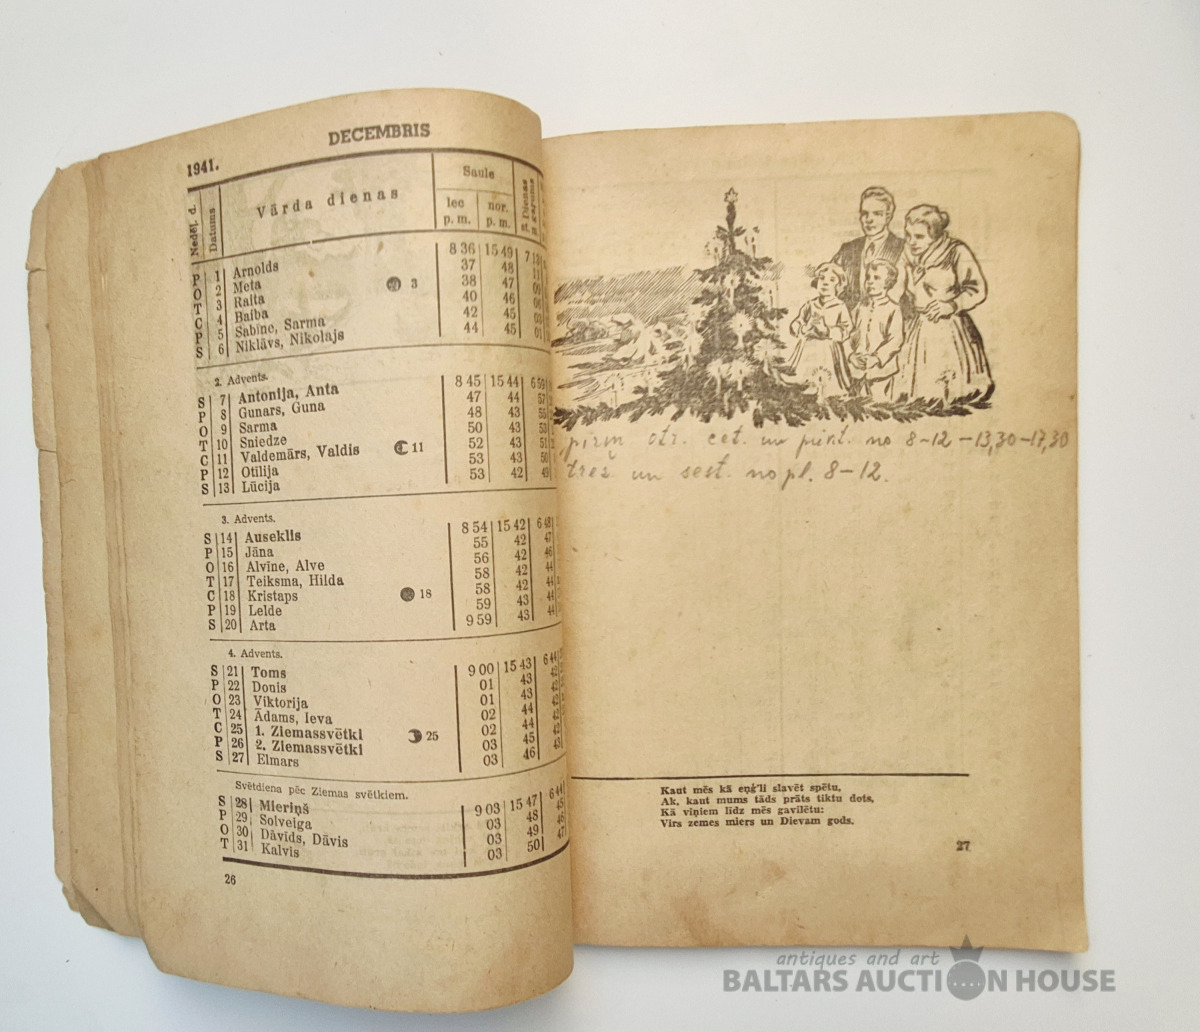 DECEMBRIS
1941.
Nedēļ. d.
Datums
Vārda dienas
Saule
lec p. m.
nor. p. m.
Dienas gaŗums st. m.
P 1 Arnolds 8 36 15 49 7 13
O 2 Meta 37 48 11
T 3 Raita 3 38 47 09
C 4 Baiba 40 46 06
P 5 Sabīne, Sarma 42 45 03
S 6 Niklāvs, Nikolajs 44 45 01
2. Advents.
S 7 Antonija, Anta 8 45 15 44 6 59
P 8 Gunars, Guna 47 44 57
O 9 Sarma 48 43 55
T 10 Sniedze 50 43 53
C 11 Valdemārs, Valdis 11 52 43 51
P 12 Otilija 53 43 50
S 13 Lūcija 53 42 49
3. Advents.
S 14 Auseklis 8 54 15 42 6 48
P 15 Jāna 55 42 47
O 16 Alvīne, Alve 56 42 46
T 17 Teiksma, Hilda 58 42 44
C 18 Kristaps 18 58 42 44
P 19 Lelde 59 43 44
S 20 Arta 9 59 43 44
4. Advents.
S 21 Toms 9 00 15 43 6 44
P 22 Donis 01 43 42
O 23 Viktorija 01 43 42
T 24 Ādams, Ieva 02 44 42
C 25 1. Ziemassvētki 25 02 44 42
P 26 2. Ziemassvētki 03 45 42
S 27 Elmars 03 46 43
Svētdiena pēc Ziemas svētkiem.
S 28 Mieriņš 9 03 15 47 6 44
P 29 Solveiga 03 48 45
O 30 Dāvids, Dāvis 03 49 46
T 31 Kalvis 03 50 47
26
pirm otr. cet. un piekt. no 8-12 - 13,30-17,30
tres. un sest. no pl. 8-12.
Kaut mēs kā eņģ'li slavēt spētu,
Ak, kaut mums tāds prāts tiktu dots,
Kā viņiem līdz mēs gavilētu:
Virs zemes miers un Dievam gods.
27
antiques and art
BALTARS AUCTION HOUSE